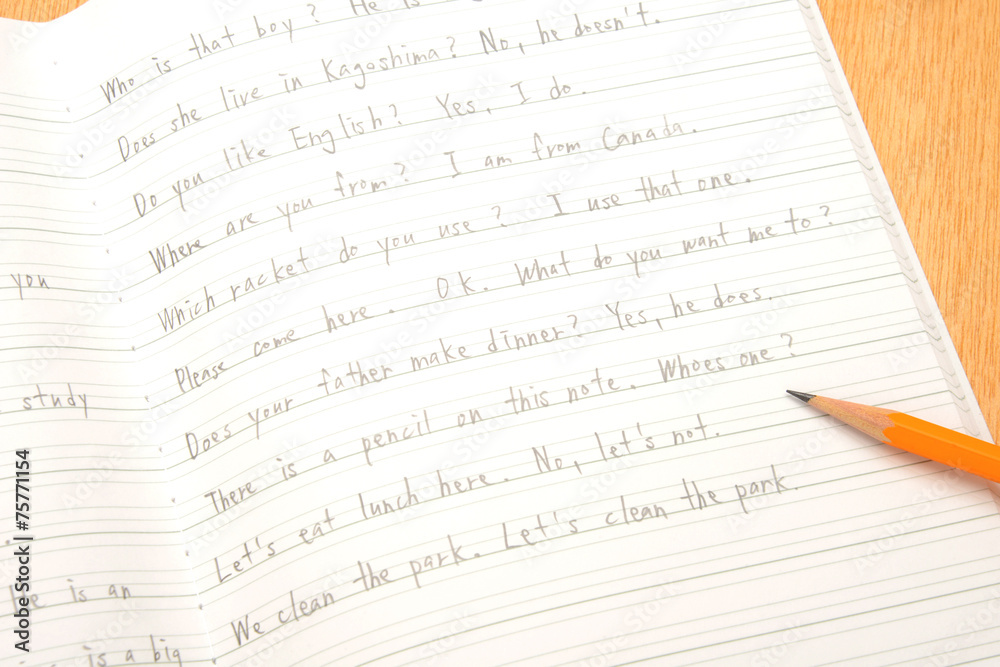 Who is that boy? He is
Does she live in Kagoshima? No, he doesn't.
Do you like English? Yes, I do.
Where are you from? I am from Canada.
Which racket do you use? I use that one.
Please come here. OK. What do you want me to?
Does your father make dinner? Yes, he does.
There is a pencil on this note. Whoes one?
Let's eat lunch here. No, let's not.
We clean the park. Let's clean the park.
you
study
is an
is a big
Adobe Stock | #75771154